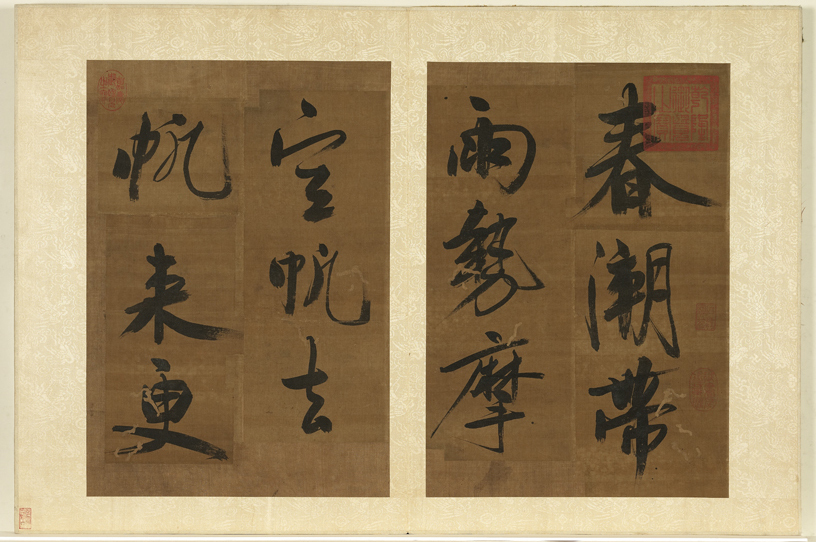 春潮帶
雨勢摩
空帆去
帆来更